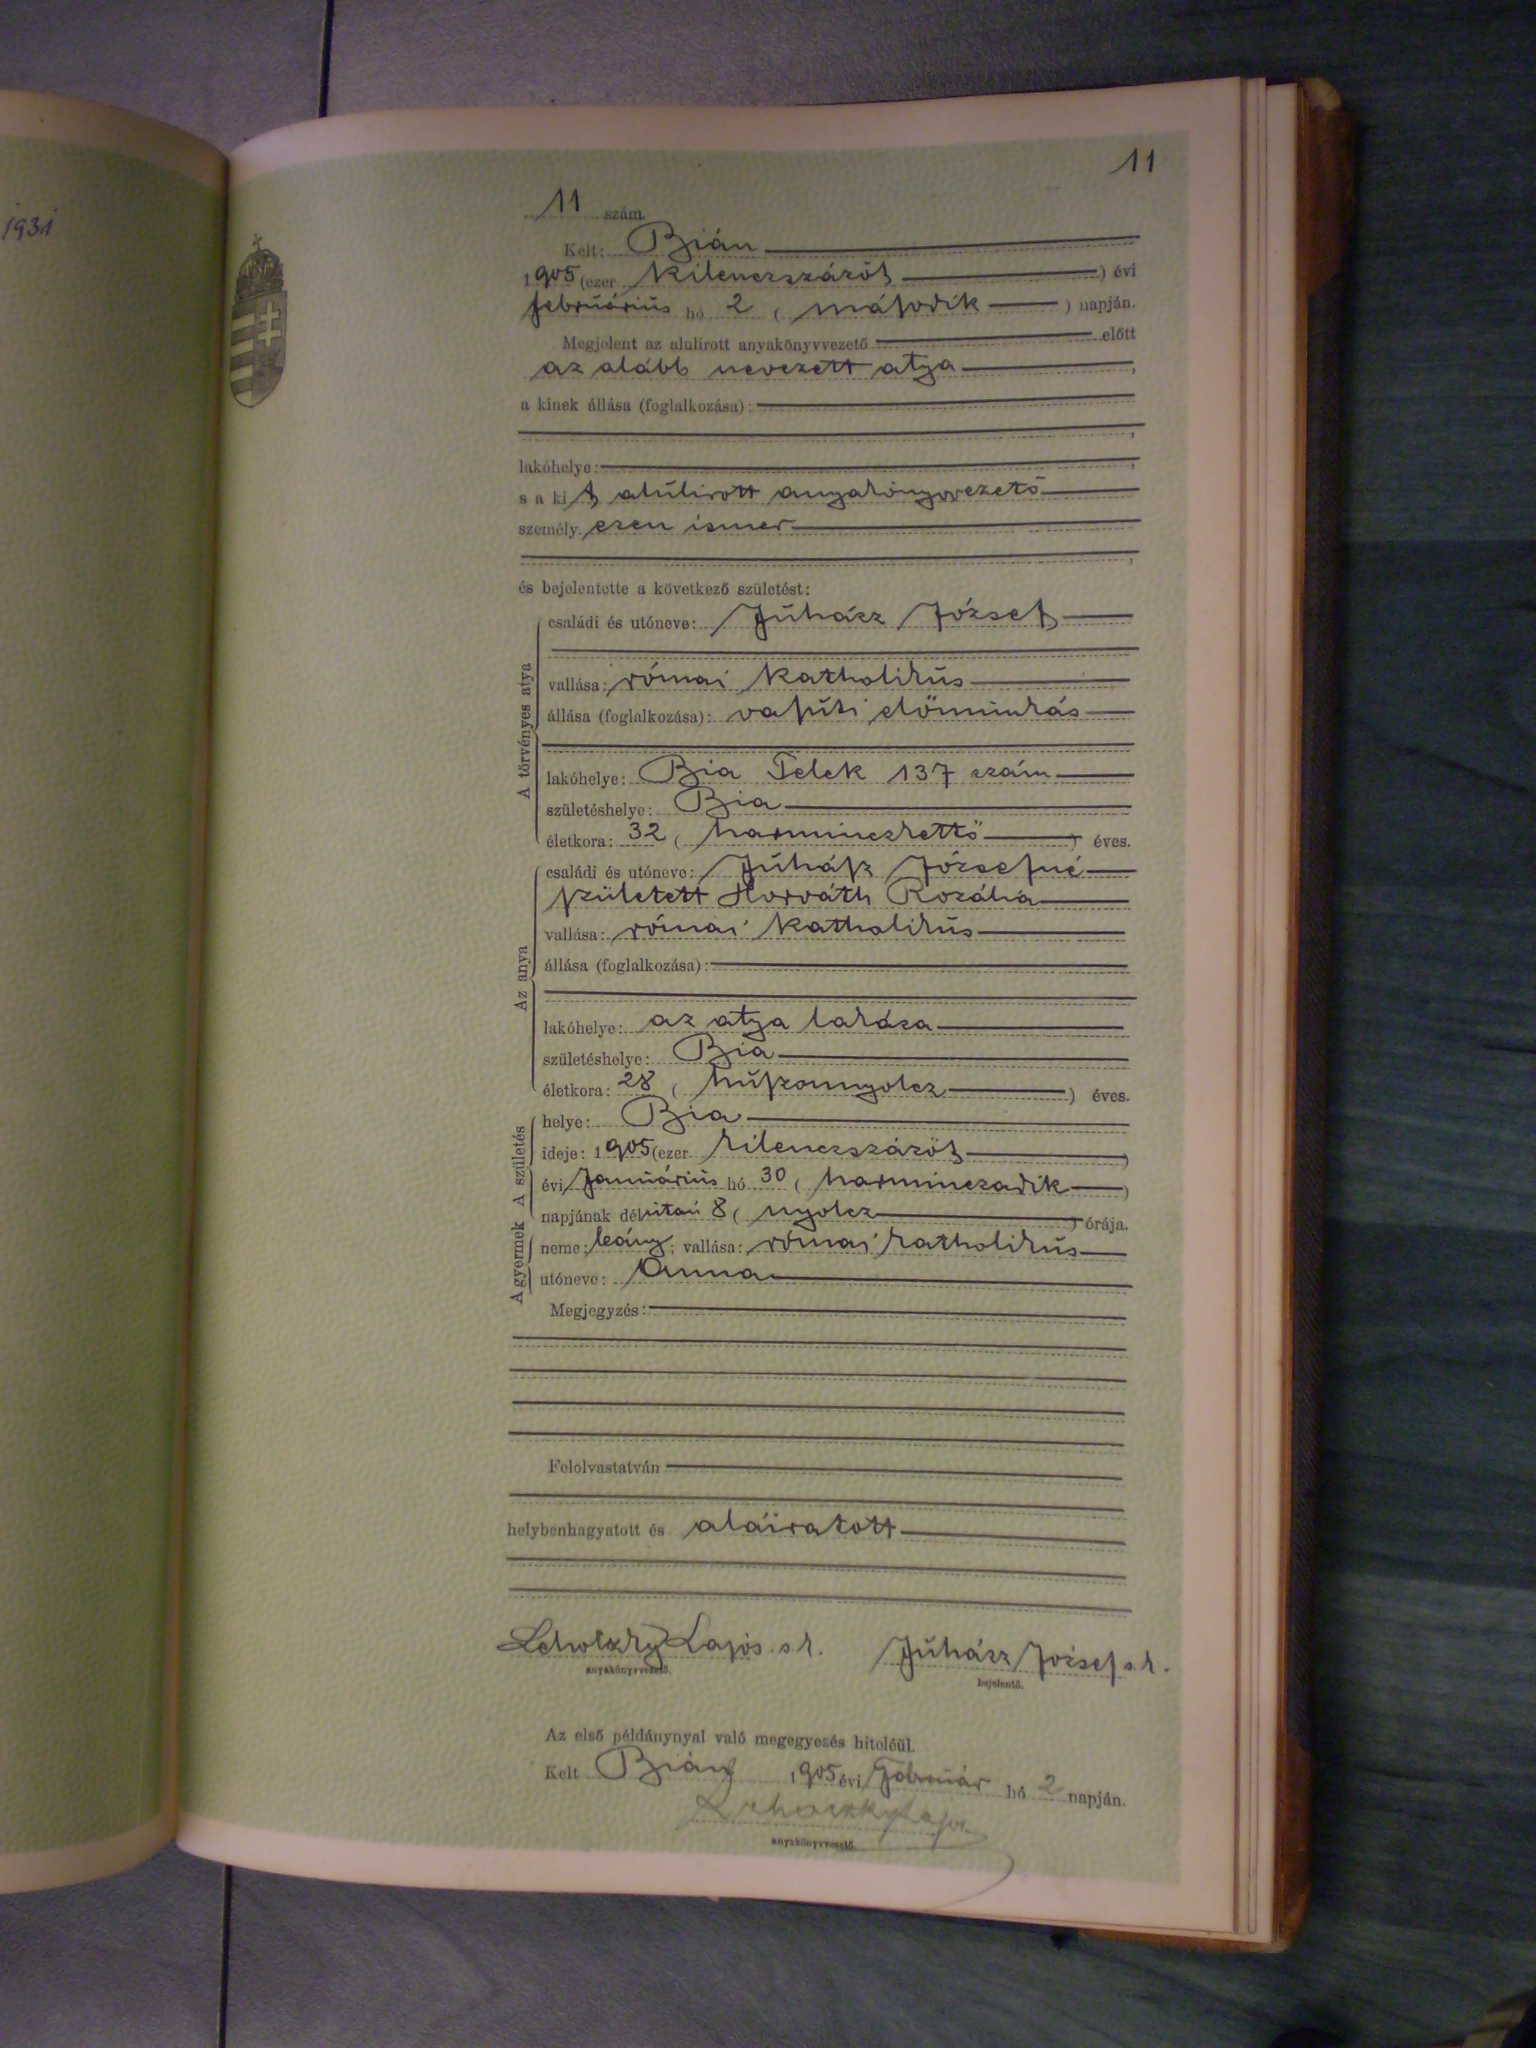 1931
11
11 szám
Kelt: Bián
1905 (ezer kilenczszázöt) évi
februárius hó 2 (második) napján.
Megjelent az alulirott anyakönyvvezető előtt
az alább nevezett atya,
a kinek állása (foglalkozása):
,
lakóhelye: ,
s a kit alúlirott anyakönyvvezető
személyesen ismer
,
és bejelentette a következő születést:
A törvényes atya
családi és utóneve: Júhász József
vallása: római katholikús
állása (foglalkozása): vasúti előmunkás
lakóhelye: Bia Telek 137 szám
születéshelye: Bia
életkora: 32 (harminczkettő) éves.
Az anya
családi és utóneve: Júhász Józsefné
született Horváth Rozália
vallása: római katholikús
állása (foglalkozása):
lakóhelye: az atya lakása
születéshelye: Bia
életkora: 28 (húszonnyolcz) éves.
A születés
helye: Bia
ideje: 1905 (ezer kilenczszázöt)
évi Januárius hó 30 (harminczadik)
napjának délután 8 (nyolcz) órája.
A gyermek
neme: leány; vallása: római katholikús
utóneve: Anna
Megjegyzés:
Felolvastatván
helybenhagyatott és aláiratott
Lehotzky Lajos s.k. Júhász József s.k.
anyakönyvvezető. bejelentő.
Az első példánynyal való megegyezés hiteléül.
Kelt Bián 1905 évi Február hó 2 napján.
anyakönyvvezető.